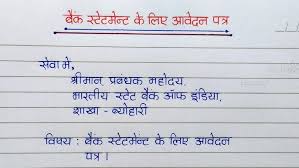 बैंक स्टेटमेन्ट के लिए आवेदन पत्र
सेवा में,
श्रीमान् प्रबंधक महोदय,
भारतीय स्टेट बैंक ऑफ इंडिया,
शाखा - ब्योहारी
विषय : बैंक स्टेटमेन्ट के लिए आवेदन
पत्र।